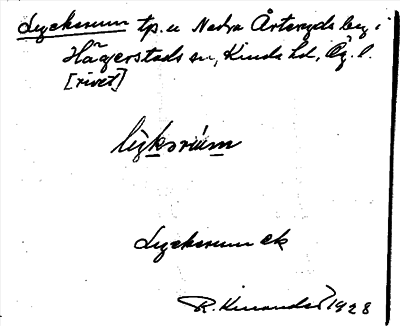 Lyckorum tp. u Nedra Årteryds beg. i
Hägerstads sn, Kinda hd, Ög. l.
[rivet]
lyksrúm
Lyckorum ek
R. Kinander 1928